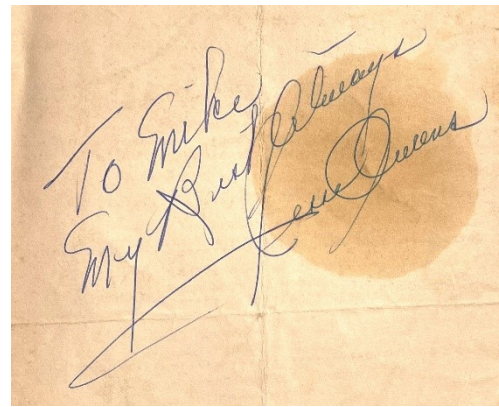 To Mike
My Best Always
Jesse Owens